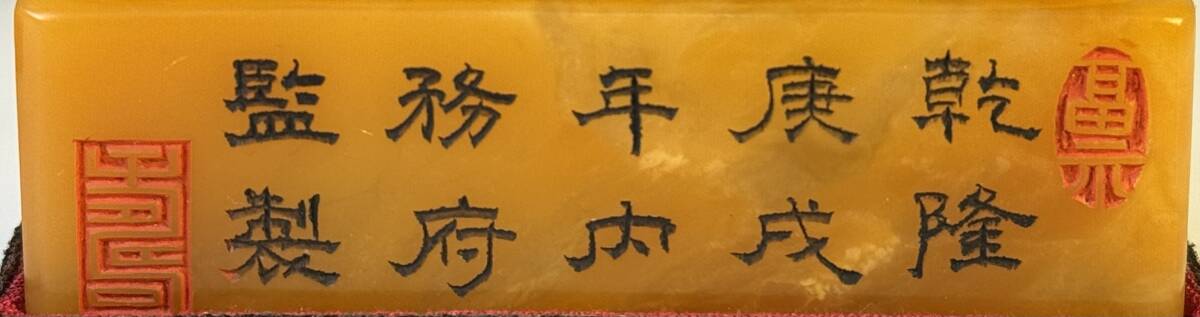 乾隆
庚戌
年内
務府
監製